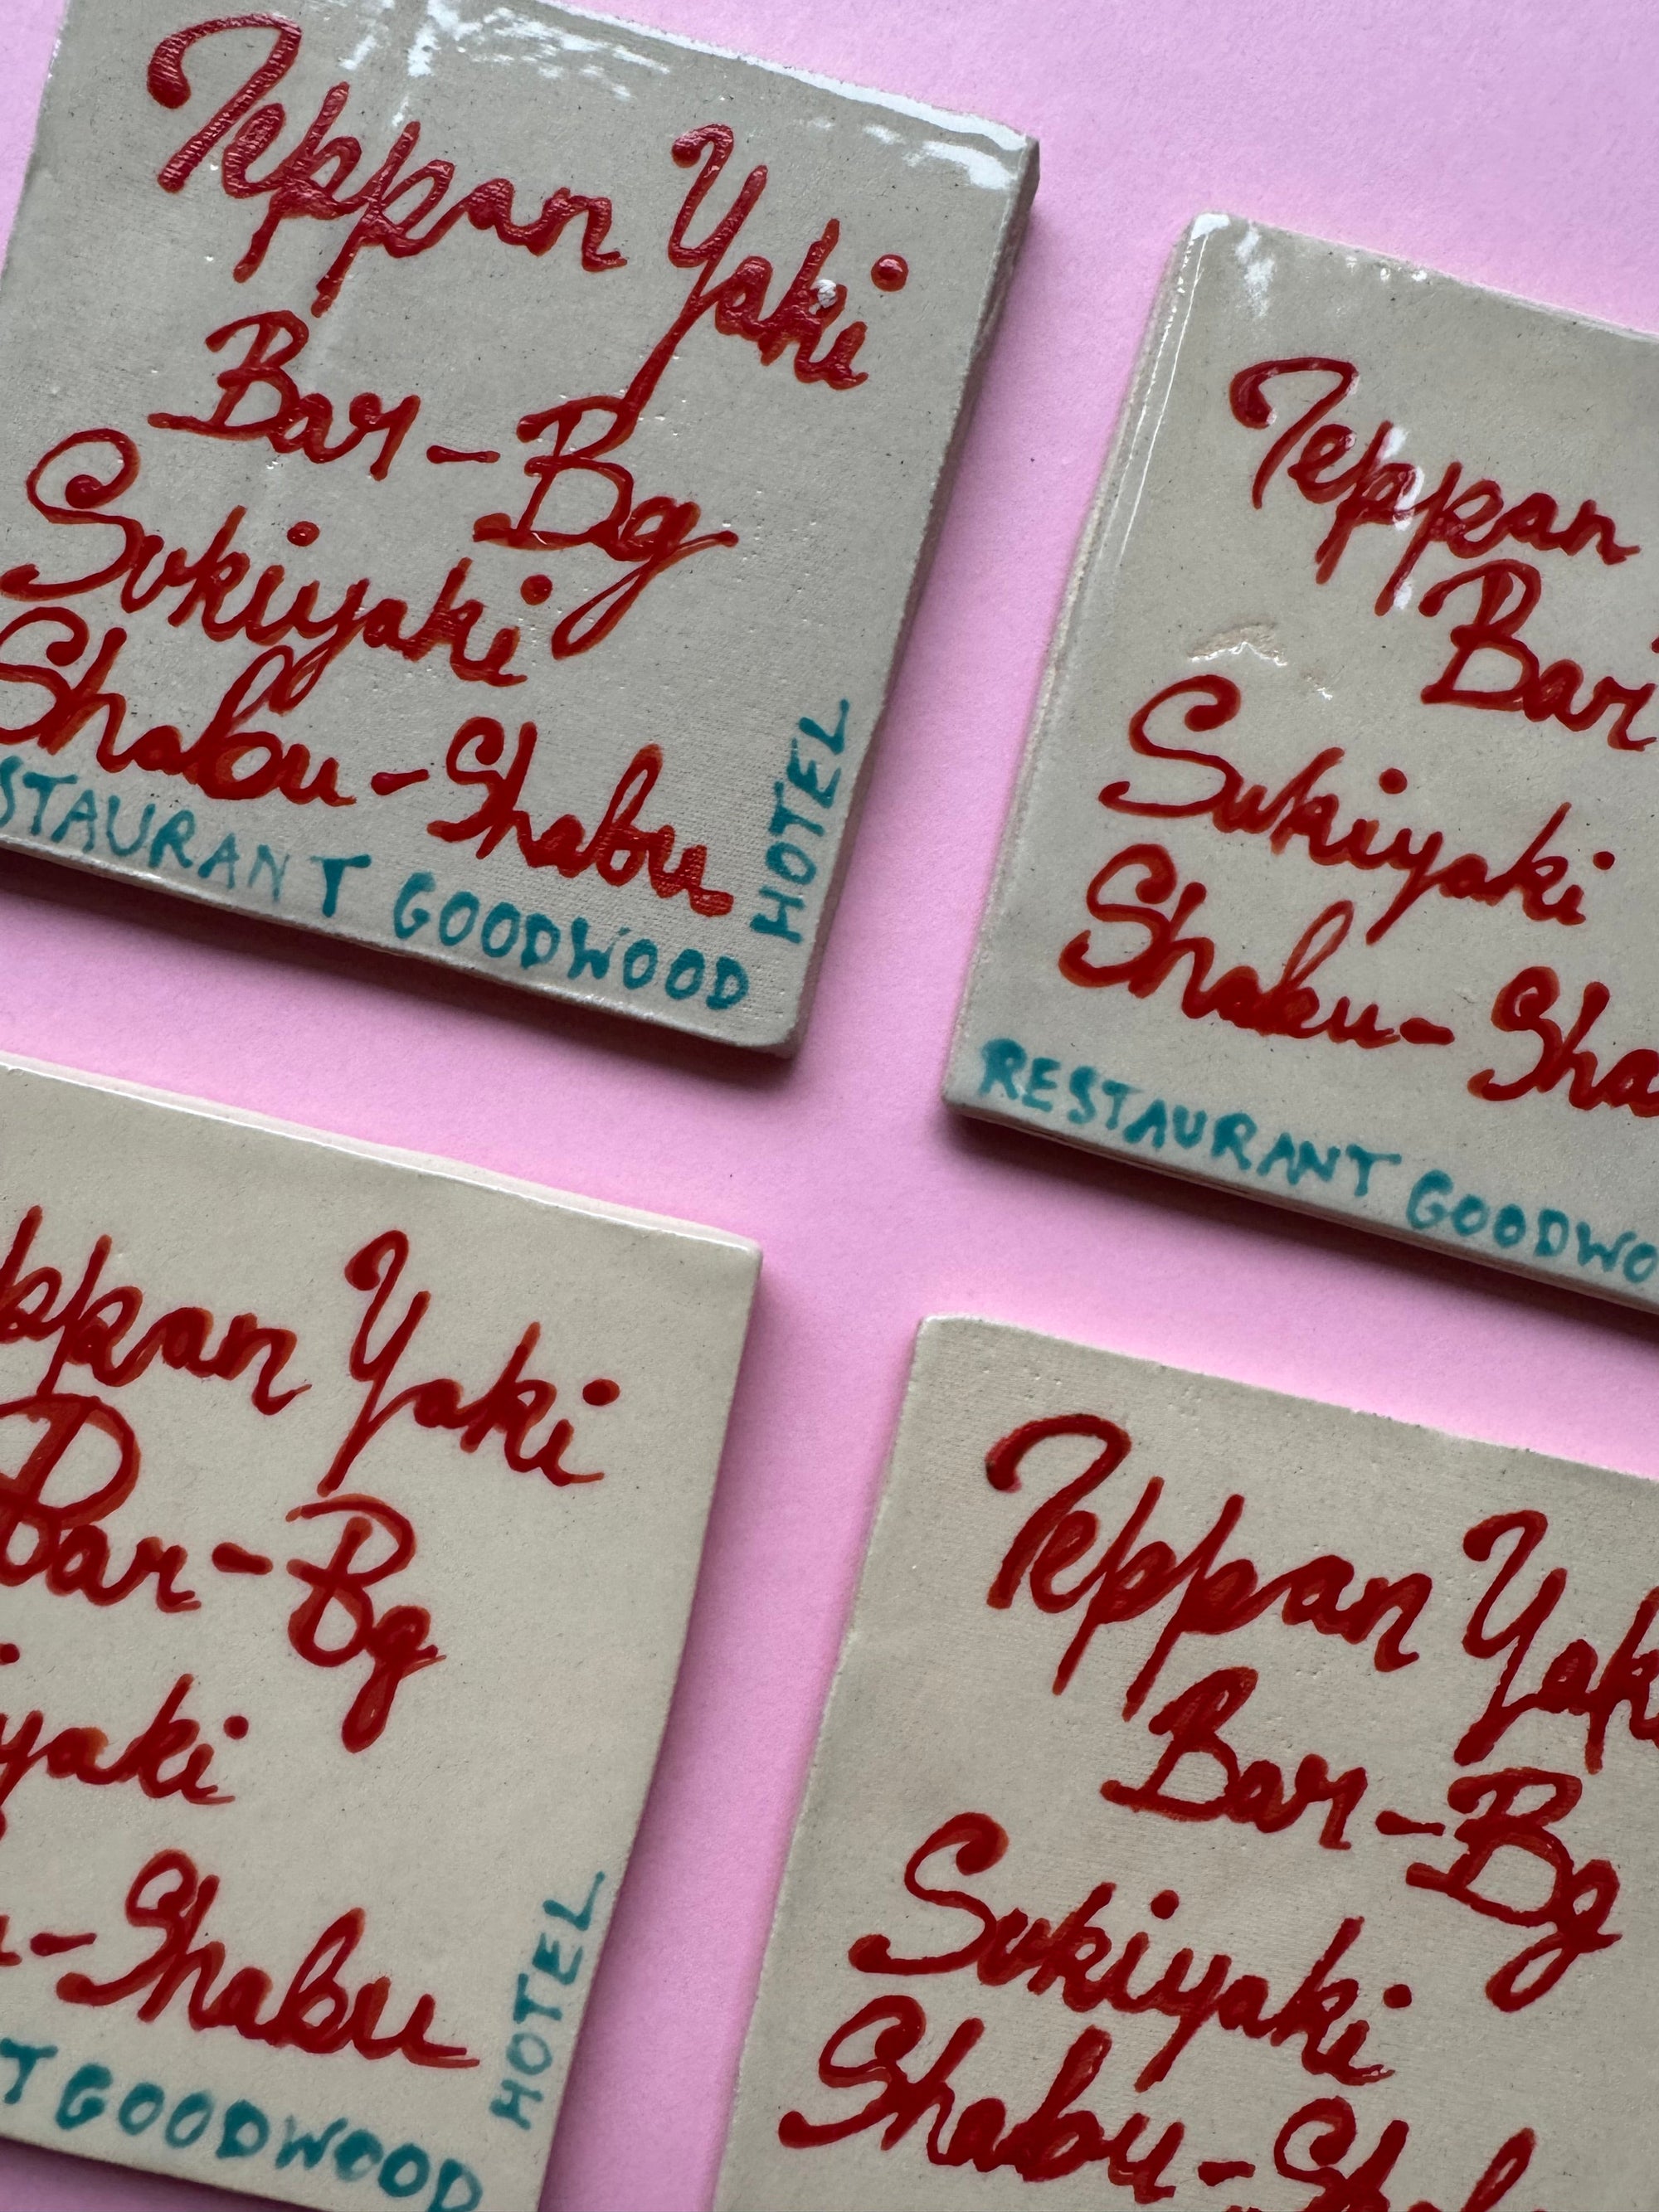 Teppan Yaki
Bar-Bg
Sukiyaki
Shabu-Shabu
STAURANT GOODWOOD
HOTEL
Teppan
Bar
Sukiyaki
Shabu-Sha
RESTAURANT GOODWO
ppan Yaki
Bar-Bg
iyaki
-Shabu
T GOODWOOD
HOTEL
Teppan Yak
Bar-Bg
Sukiyaki
Shabu-Shab